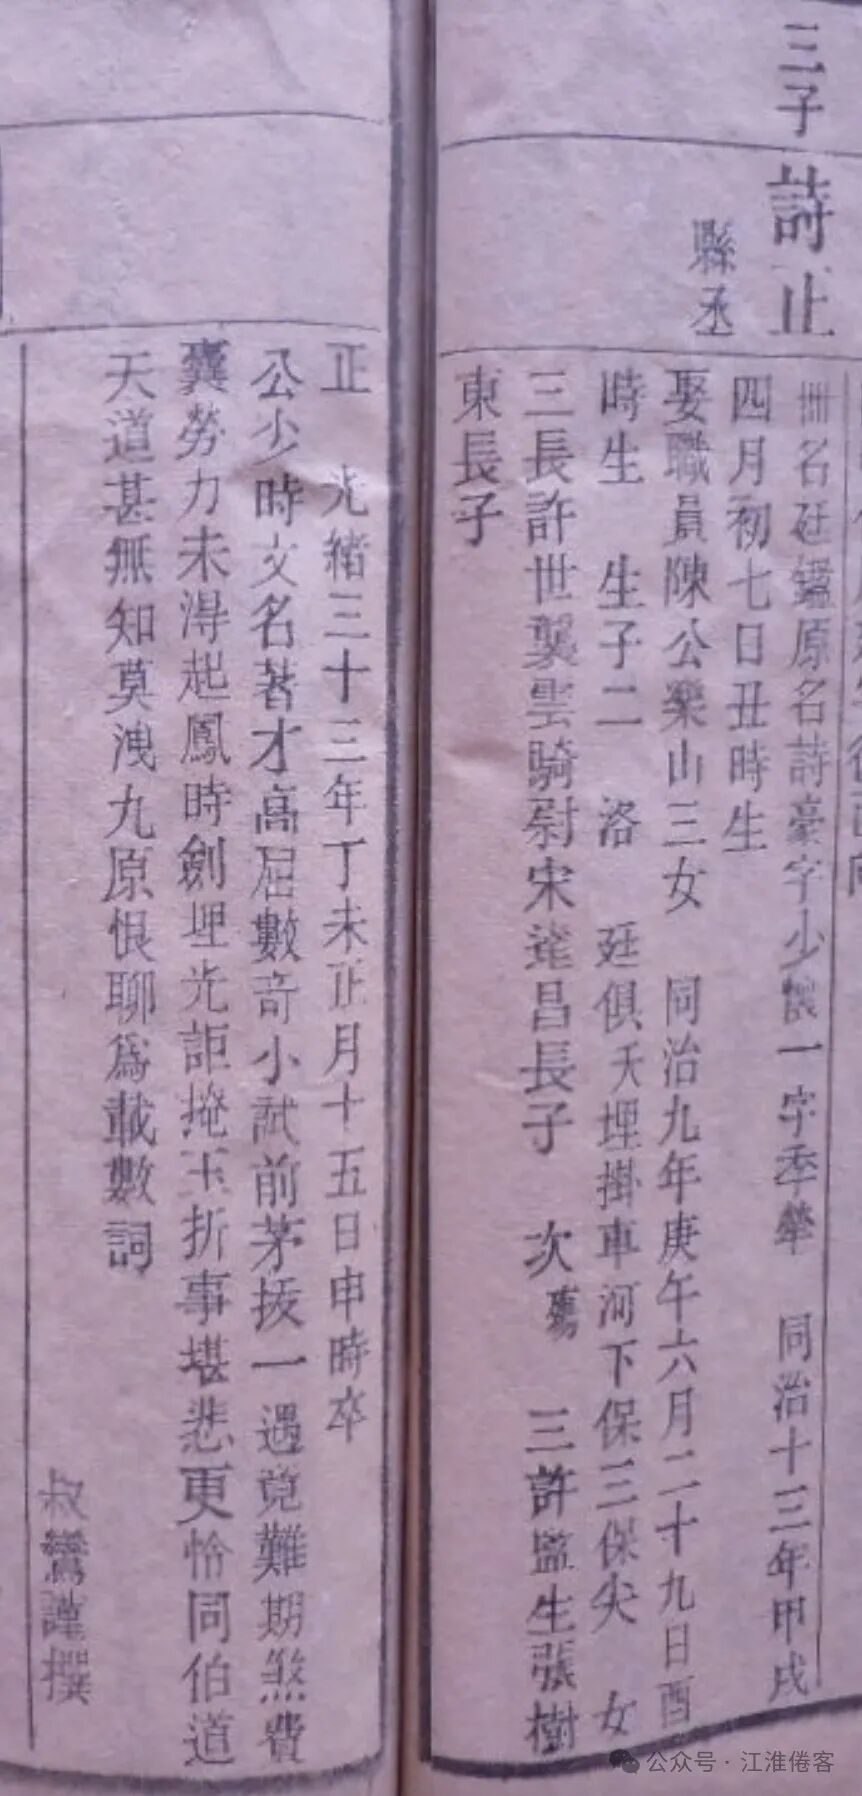 三子
詩正
縣丞
冊名廷鑑原名詩豪字少懷一字季犖 同治十三年甲戌
四月初七日丑時生
娶職員陳公樂山三女 同治九年庚午六月二十九日酉
時生 生子二 洛 廷俱夭埋掛車河下保三保尖 女
三長許世襲雲騎尉宋逢昌長子 次殤 三許監生張樹
東長子
正 光緒三十三年丁未正月十五日申時卒
公少時文名著才高屈數奇小試前茅拔一遇竟難期煞費
囊勞力未得起鳳時劍埋光詎掩玉折事堪悲更恰同伯道
天道甚無知莫洩九原恨聊為載數詞
叔鸞謹撰
公众号·江淮倦客